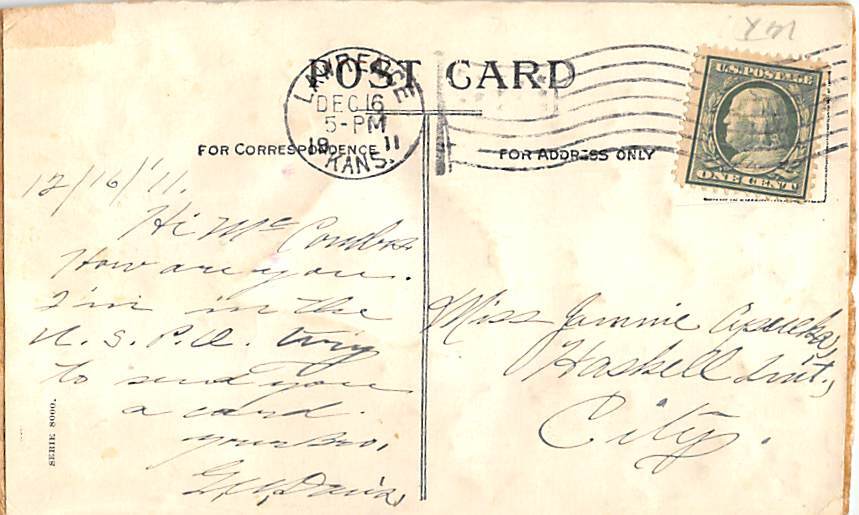 POST CARD
LAWRENCE
DEC 16
5-PM
19 11
KANS.
U.S. POSTAGE
ONE CENT
FOR CORRESPONDENCE
FOR ADDRESS ONLY
12/16/'11.
Hi Mc Combs
How are you.
I'm in the
U. S. P. O.
to send you
a card.
your Bro,
Davis,
SERIE 8000.
Miss Jimmie
Haskell Inst.,
City.